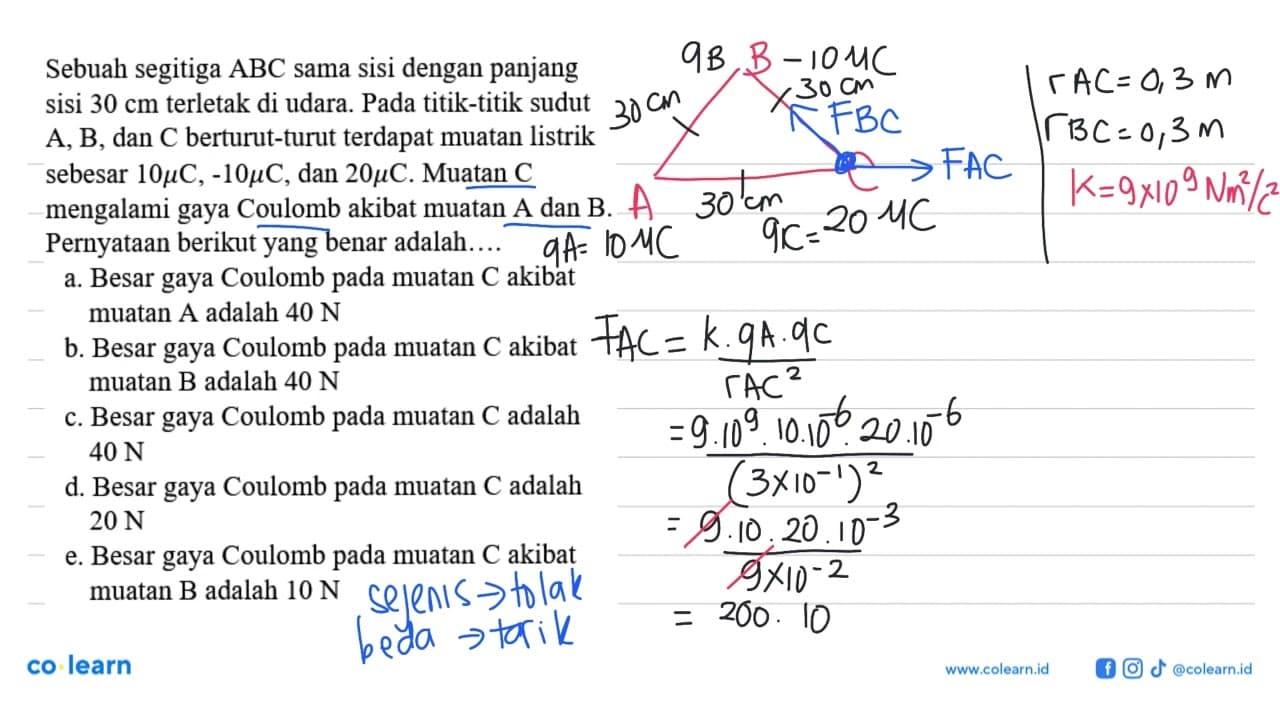 Sebuah segitiga ABC sama sisi dengan panjang
sisi 30 cm terletak di udara. Pada titik-titik sudut
A, B, dan C berturut-turut terdapat muatan listrik
sebesar 10μC, -10μC, dan 20μC. Muatan C
mengalami gaya Coulomb akibat muatan A dan B.
Pernyataan berikut yang benar adalah....
a. Besar gaya Coulomb pada muatan C akibat
muatan A adalah 40 N
b. Besar gaya Coulomb pada muatan C akibat
muatan B adalah 40 N
c. Besar gaya Coulomb pada muatan C adalah
40 N
d. Besar gaya Coulomb pada muatan C adalah
20 N
e. Besar gaya Coulomb pada muatan C akibat
muatan B adalah 10 N
sejenis → tolak
beda → tarik
qB B -10 μC
30 cm
30 cm
FBC
FAC
A
30 cm
C
qA = 10 μC
qC = 20 μC
rAC = 0,3 m
rBC = 0,3 m
K = 9×10⁹ Nm²/C²
FAC = k . qA . qC
rAC²
= 9.10⁹. 10.10⁻⁶. 20.10⁻⁶
(3×10⁻¹)²
= 9.10.20.10⁻³
9×10⁻²
= 200. 10
co learn
www.colearn.id
@colearn.id